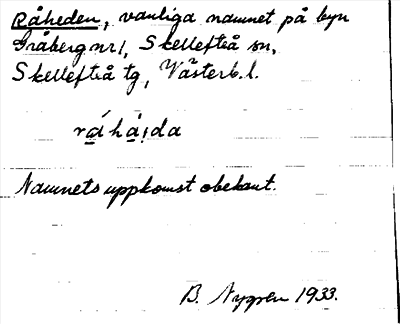 Råheden, vanliga namnet på byn
Gråberg nr 1, Skellefteå sn,
Skellefteå tg, Västerb. l.
rá̲ha̲i̯da
Namnets uppkomst obekant.
B. Nygren 1933.